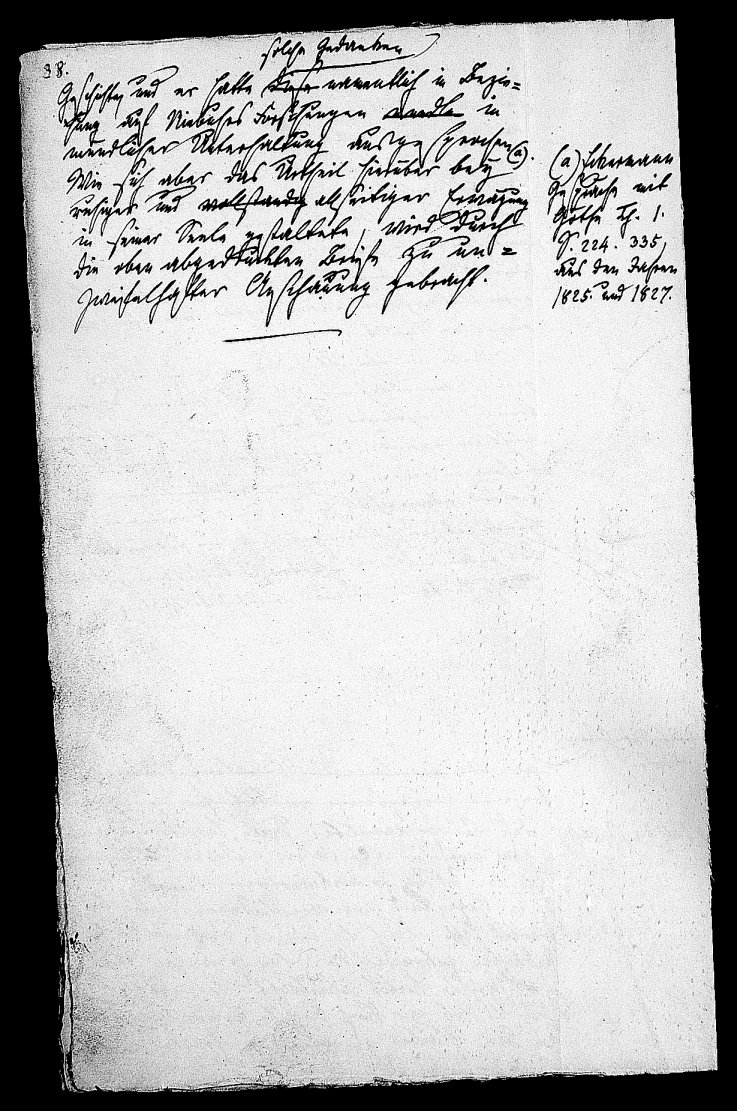 38.
solche Gedanken
Geschichte, und er hatte diese namentlich in Bezie-
hung auf Niebuhrs Forschungen in
mündlicher Unterhaltung ausgesprochen (a).
Wie sich aber das Urtheil hierüber bey
ruhiger und vollständig allseitiger Erwägung
in seiner Seele gestaltete, wird durch
die oben abgedruckten Briefe zu un-
zweifelhafter Anschauung gebracht.
(a) Eckermann
Gespräche mit
Göthe Th. 1.
S. 224. 335,
aus den Jahren
1825. und 1827.